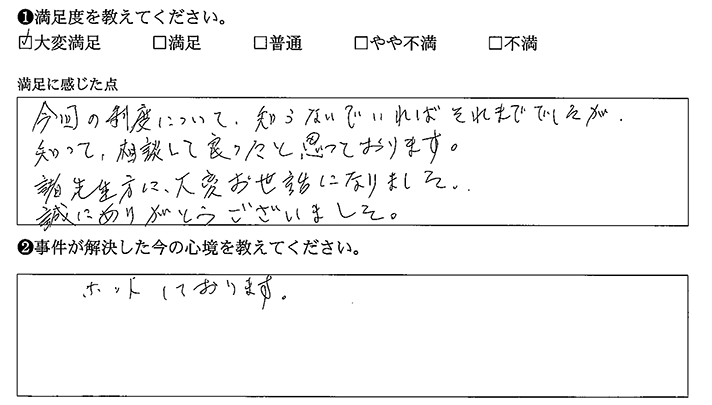 ❶満足度を教えてください。
☑大変満足 □満足 □普通 □やや不満 □不満
満足に感じた点
今回の制度について、知らないでいればそれまででしたが、
知って、相談して良かったと思っております。
諸先生方に、大変お世話になりました。
誠にありがとうございました。
❷事件が解決した今の心境を教えてください。
ホットしております。